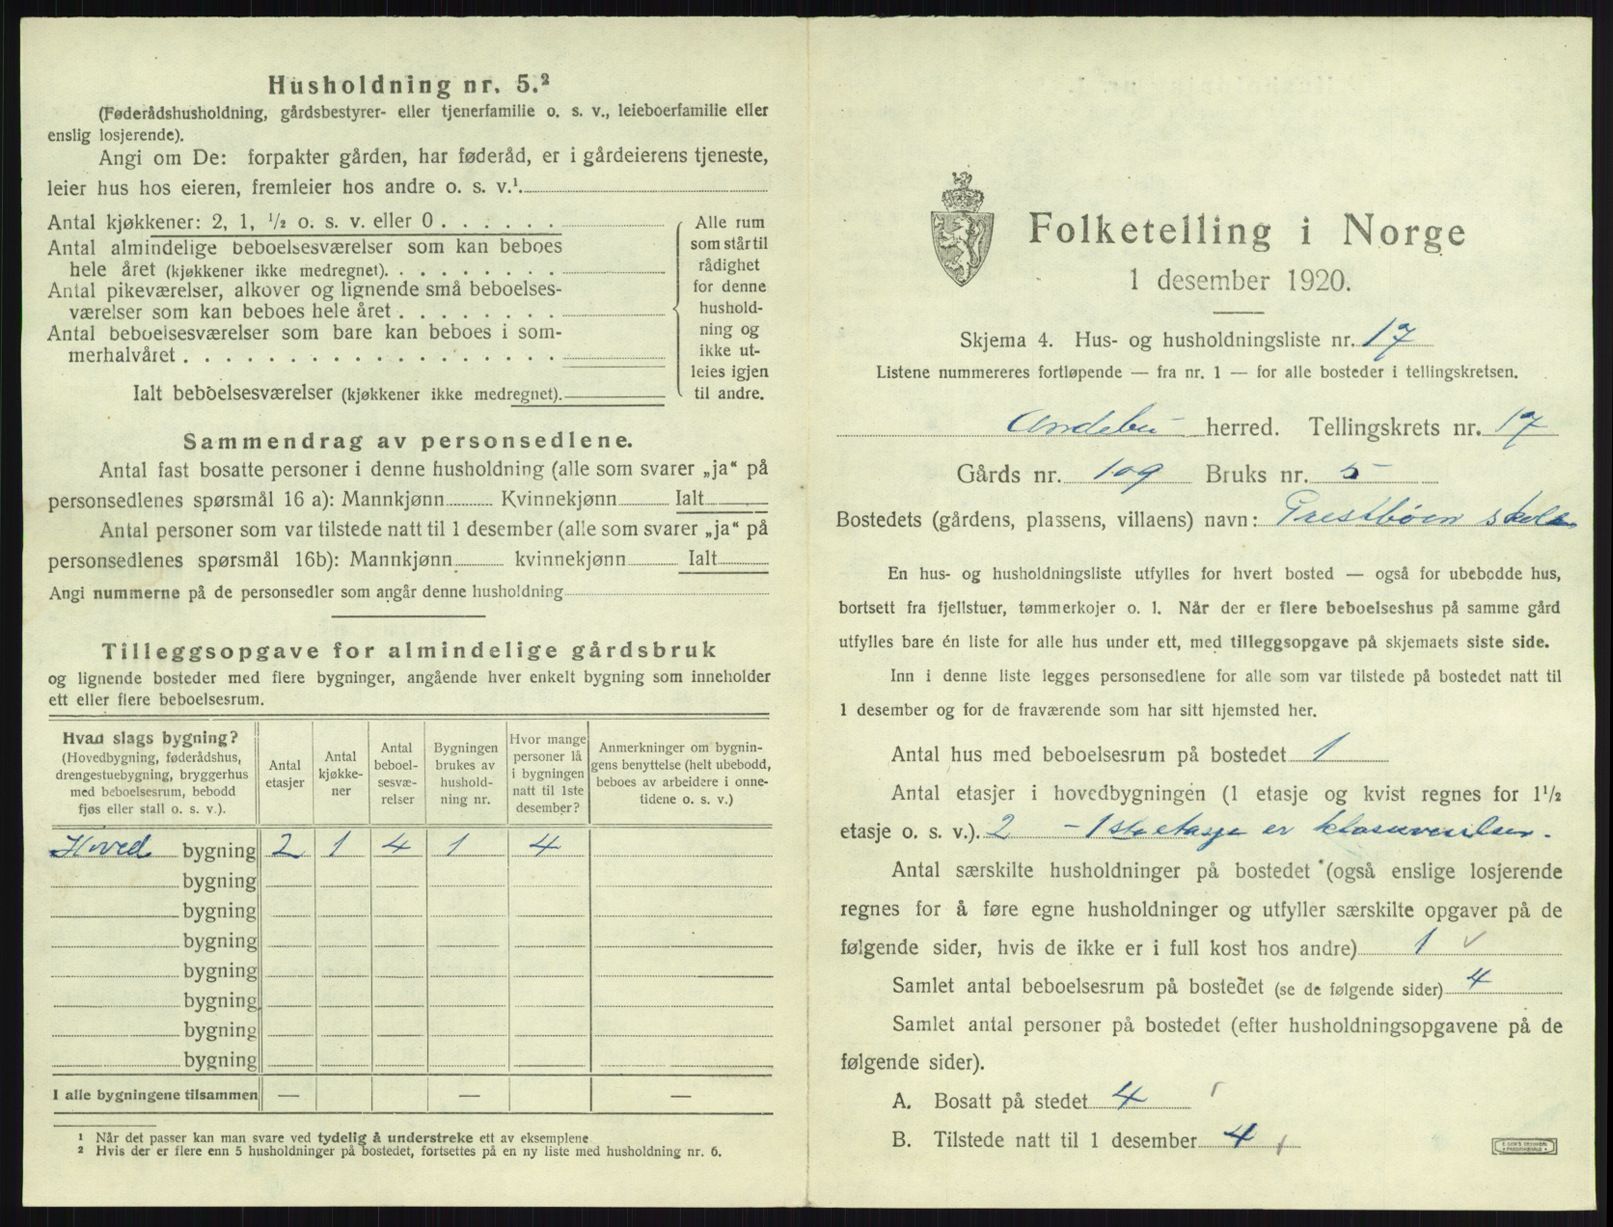 Husholdning nr. 5.²
(Føderådshusholdning, gårdsbestyrer- eller tjenerfamilie o. s. v., leieboerfamilie eller
enslig losjerende).
Angi om De: forpakter gården, har føderåd, er i gårdeierens tjeneste,
leier hus hos eieren, fremleier hos andre o. s. v.¹
Antal kjøkkener: 2, 1, ½ o. s. v. eller 0 . . . . . .
Antal almindelige beboelsesværelser som kan beboes
hele året (kjøkkener ikke medregnet). . . . . . . . .
Antal pikeværelser, alkover og lignende små beboelses-
værelser som kan beboes hele året . . . . . . . .
Antal beboelsesværelser som bare kan beboes i som-
merhalvåret . . . . . . . . . . . . . . . . . .
Ialt beboelsesværelser (kjøkkener ikke medregnet).
Alle rum
som står til
rådighet
for denne
hushold-
ning og
ikke ut-
leies igjen
til andre.
Sammendrag av personsedlene.
Antal fast bosatte personer i denne husholdning (alle som svarer „ja“ på
personsedlenes spørsmål 16 a): Mannkjønn Kvinnekjønn Ialt
Antal personer som var tilstede natt til 1 desember (alle som svarer „ja“ på
personsedlenes spørsmål 16b): Mannkjønn kvinnekjønn Ialt
Angi nummerne på de personsedler som angår denne husholdning
Tilleggsopgave for almindelige gårdsbruk
og lignende bosteder med flere bygninger, angående hver enkelt bygning som inneholder
ett eller flere beboelsesrum.
Hvad slags bygning?
(Hovedbygning, føderådshus,
drengestuebygning, bryggerhus
med beboelsesrum, bebodd
fjøs eller stall o. s. v.).
Antal
etasjer
Antal
kjøkke-
ner
Antal
beboel-
sesvæ-
relser
Bygningen
brukes av
hushold-
ning nr.
Hvor mange
personer lå
i bygningen
natt til 1ste
desember?
Anmerkninger om bygnin-
gens benyttelse (helt ubebodd,
beboes av arbeidere i onne-
tidene o. s. v.)
Hoved bygning 2 1 4 1 4
bygning
bygning
bygning
bygning
bygning
bygning
bygning
I alle bygningene tilsammen — — —
¹ Når det passer kan man svare ved tydelig å understreke ett av eksemplene
² Hvis der er flere enn 5 husholdninger på bostedet, fortsettes på en ny liste med husholdning nr. 6.
Folketelling i Norge
1 desember 1920.
Skjema 4. Hus- og husholdningsliste nr. 17
Listene nummereres fortløpende — fra nr. 1 — for alle bosteder i tellingskretsen.
Andebu herred. Tellingskrets nr. 17
Gårds nr. 109 Bruks nr. 5
Bostedets (gårdens, plassens, villaens) navn: Prestbøen skole
En hus- og husholdningsliste utfylles for hvert bosted — også for ubebodde hus,
bortsett fra fjellstuer, tømmerkojer o. l. Når der er flere beboelseshus på samme gård
utfylles bare én liste for alle hus under ett, med tilleggsopgave på skjemaets siste side.
Inn i denne liste legges personsedlene for alle som var tilstede på bostedet natt til
1 desember og for de fraværende som har sitt hjemsted her.
Antal hus med beboelsesrum på bostedet 1
Antal etasjer i hovedbygningen (1 etasje og kvist regnes for 1½
etasje o. s. v.). 2 – 1ste etasje er klasseværelser.
Antal særskilte husholdninger på bostedet (også enslige losjerende
regnes for å føre egne husholdninger og utfyller særskilte opgaver på de
følgende sider, hvis de ikke er i full kost hos andre) 1 ✓
Samlet antal beboelsesrum på bostedet (se de følgende sider) 4
Samlet antal personer på bostedet (efter husholdningsopgavene på de
følgende sider).
A. Bosatt på stedet 4
B. Tilstede natt til 1 desember 4